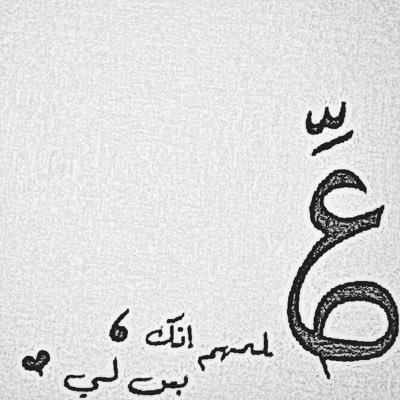 علِّمهم إنك ،
بس لي ♥